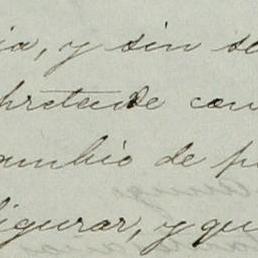 ia, y sin se
pretende con
cambio de p
figurar, y qu